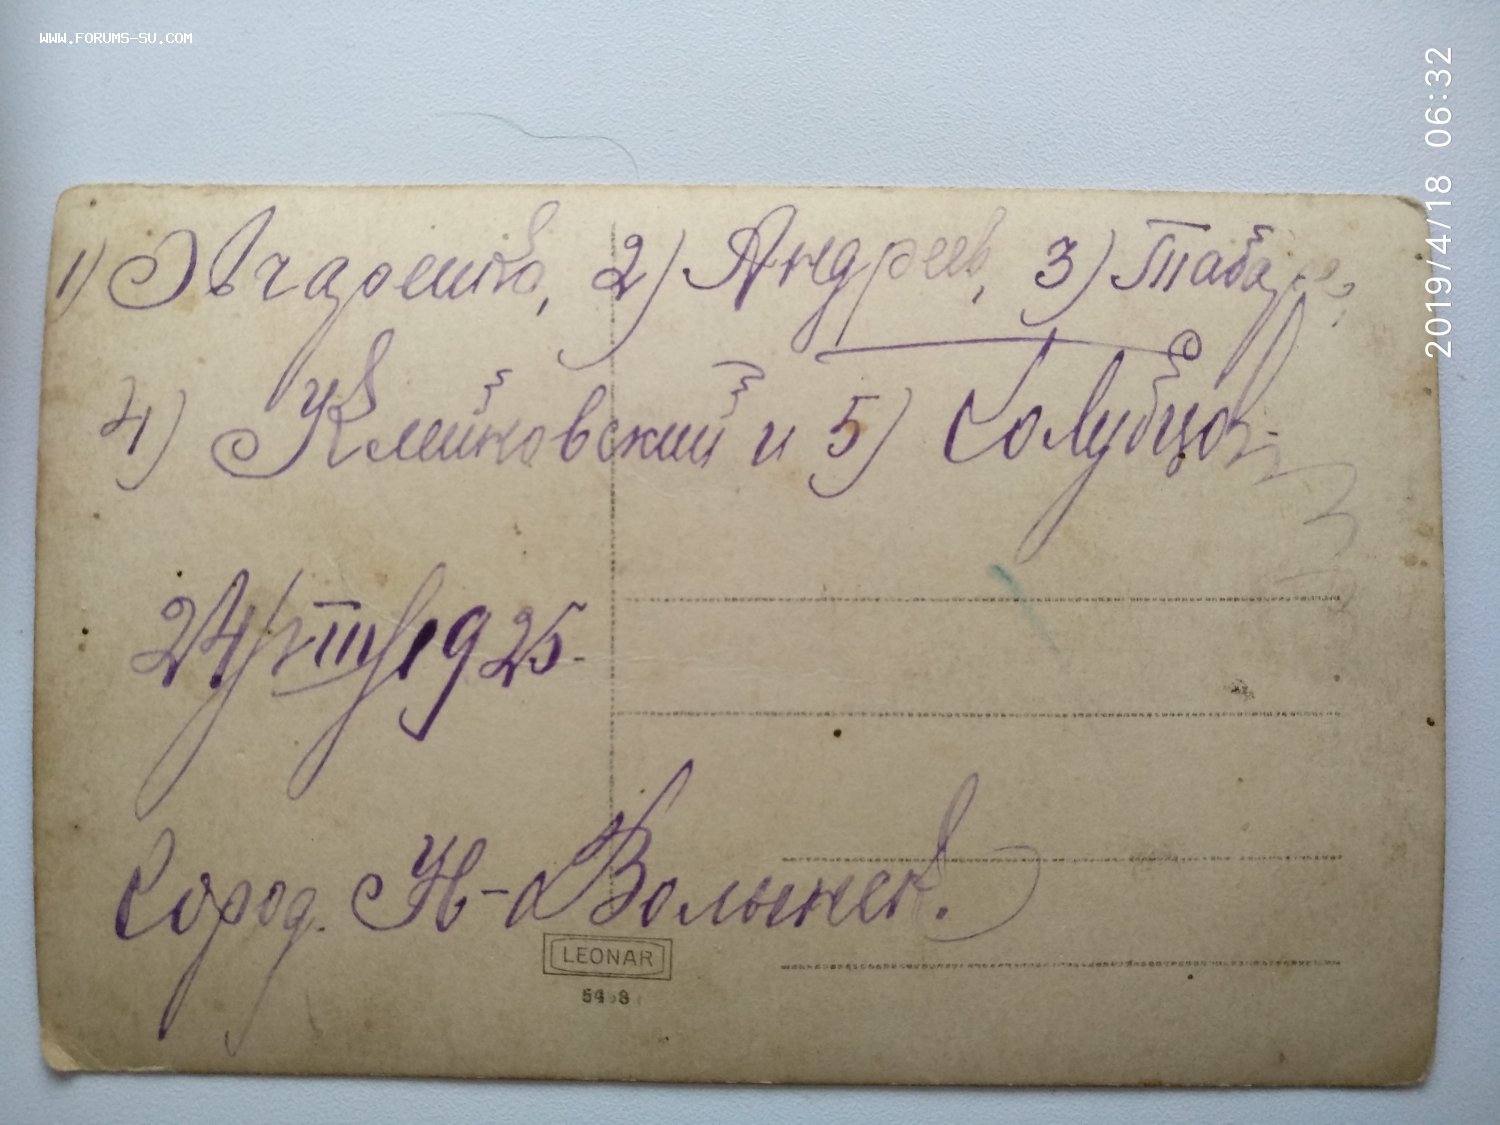 WWW.FORUMS-SU.COM
2019/4/18 06:32
1) Овчаренко, 2) Андреев, 3)
4) Клейновский и 5) Голубцов
24/VIII/1925.
Город. Н-Волынск.
LEONAR